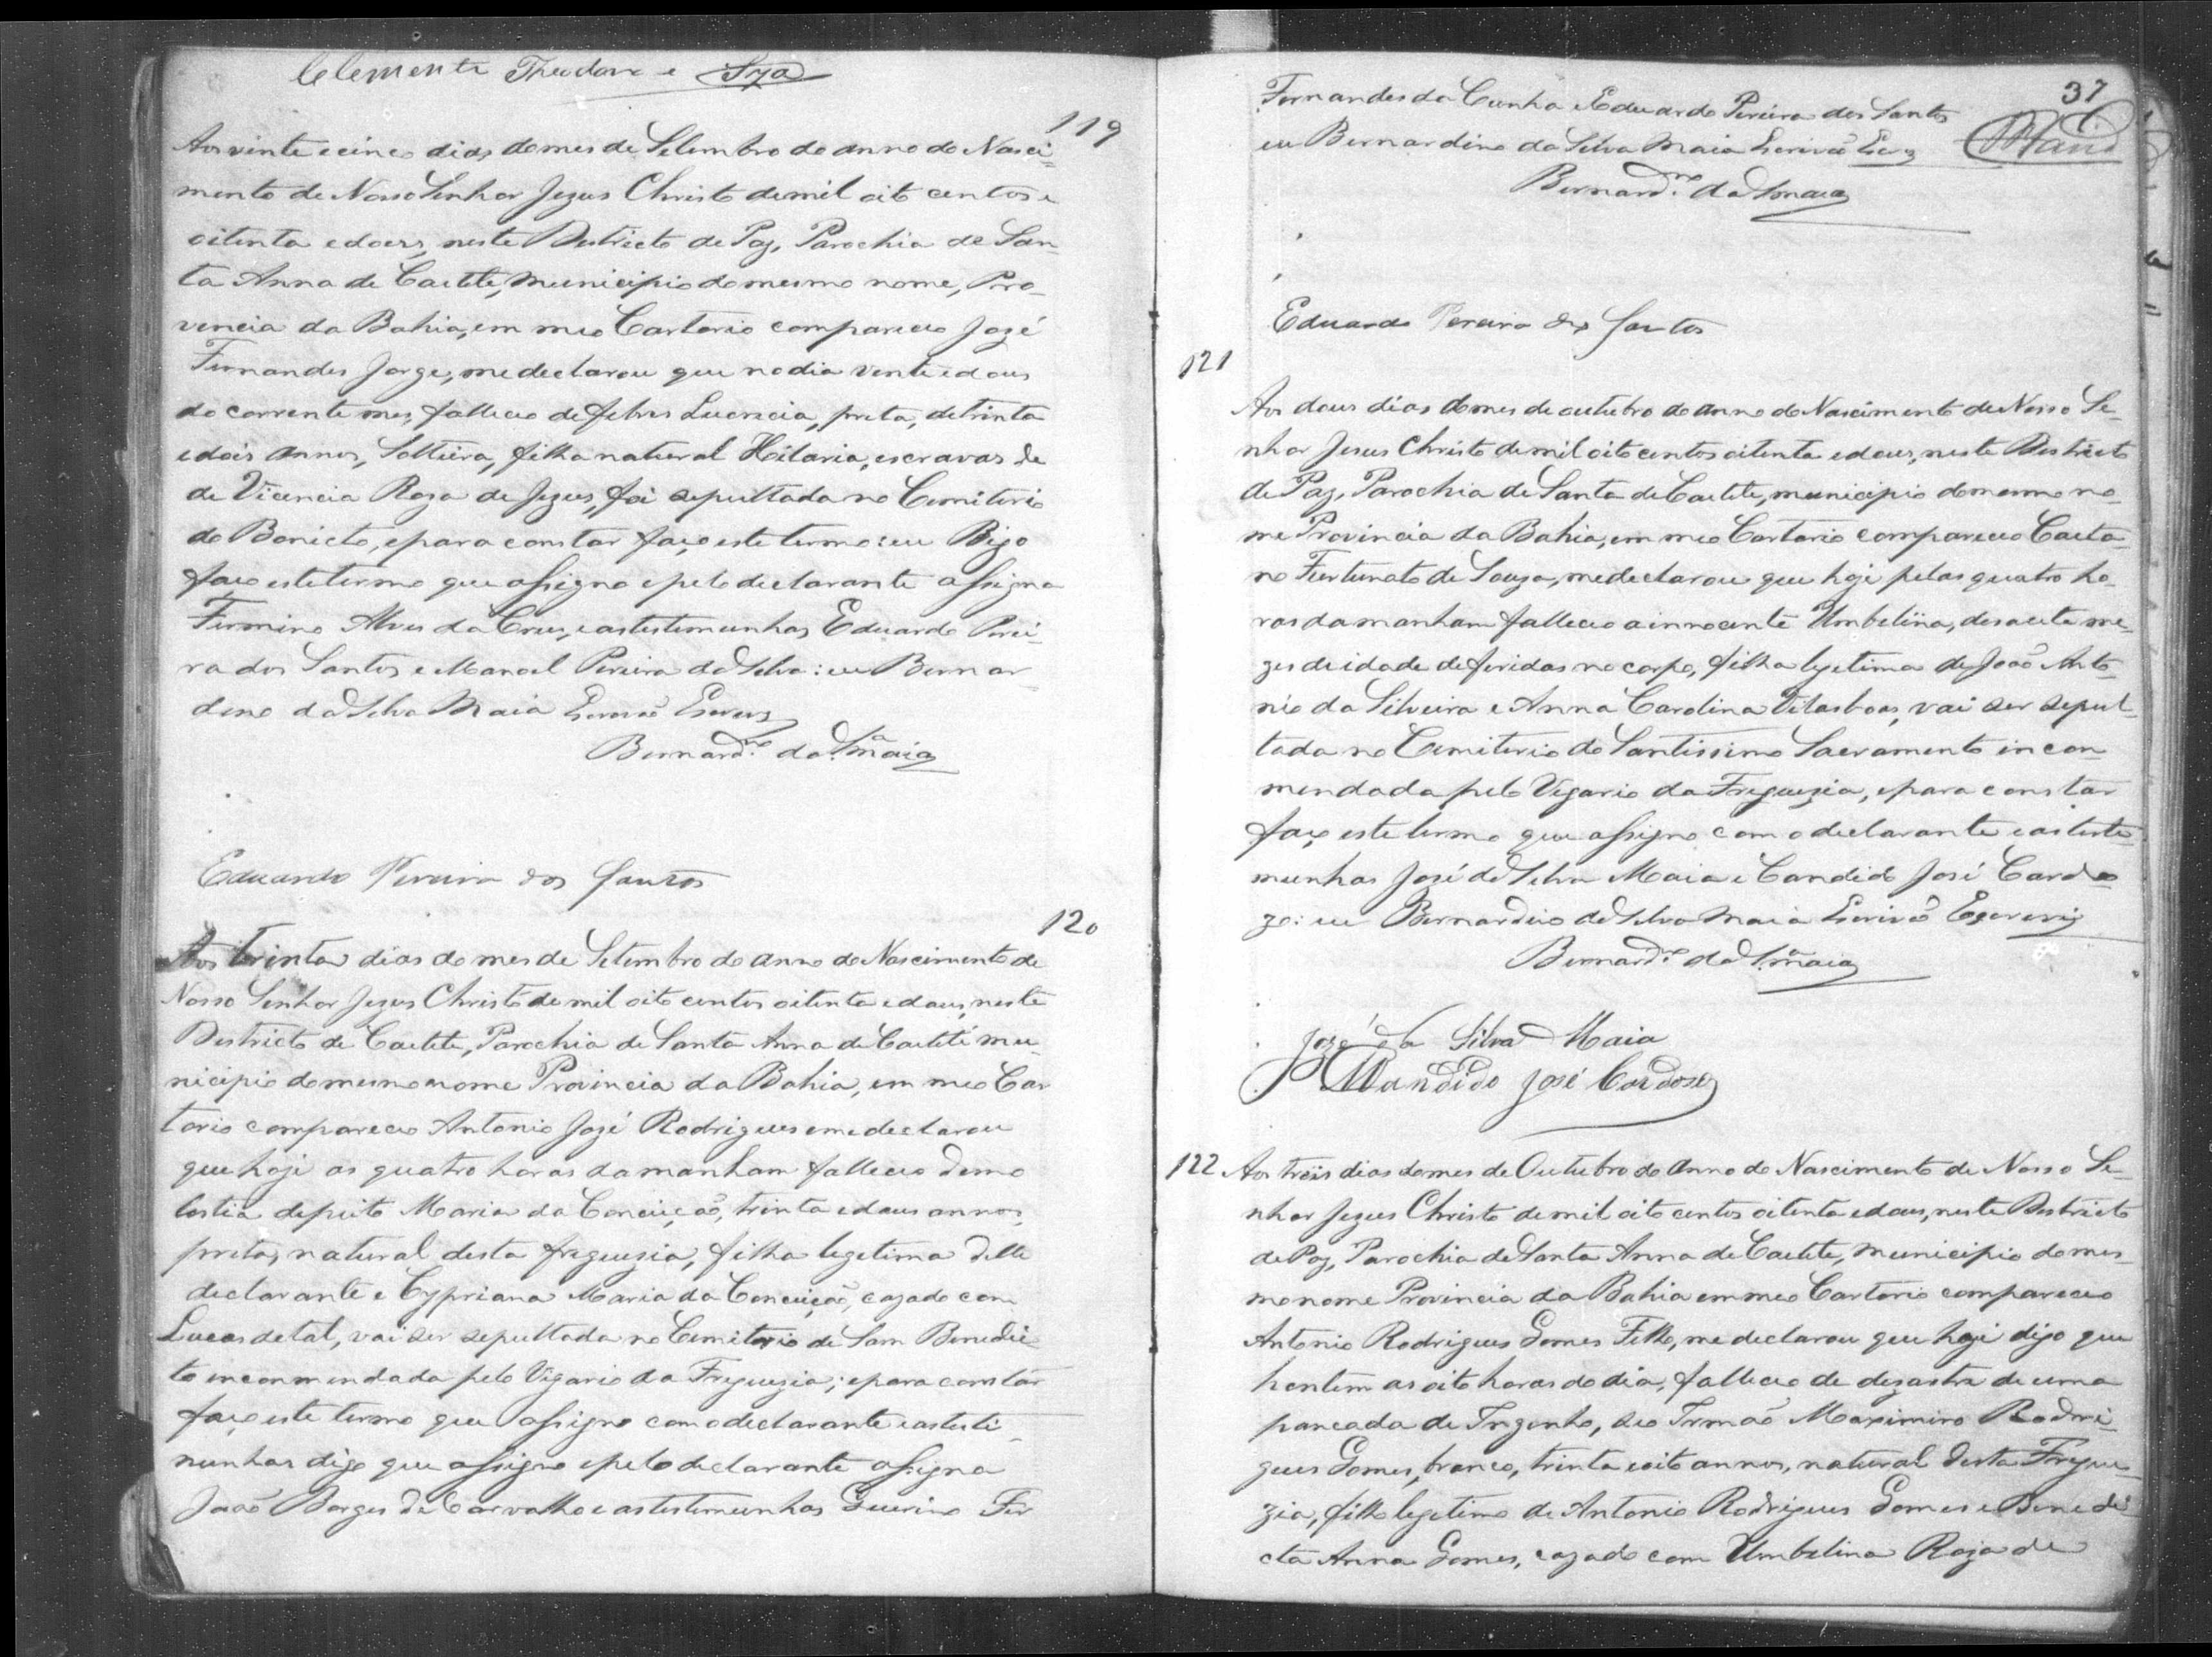 Clemente Theodoro e Sza
119
Aos vinte e cinco dias do mes de Setembro do anno do Nasci-
mento de Nosso Senhor Jezus Christo de mil oito centos e
oitenta e dous, neste Destricto de Paz, Parochia de San-
ta Anna de Caetite, municipio do mesmo nome, Pro-
vencia da Bahia, em meo Cartorio compareceo Jozé
Fernandes Jorge, me declarou que no dia vente e dous
do corrente mes, falleceo de febres Lucrecia, preta, de trinta
e dois annos, Solteira, filha natural Hilaria, escravas de
de Vicencia Roza de Jezus, foi sepultada no Cemiterio
do Bonicto, e para constar faço este termo: eu Digo
faço este termo que assigno e pelo declarante assigna
Firmino Alves da Cruz, e as testemunhas Eduardo Perei-
ra dos Santos e Manoel Pereira da Silva: eu Bernar-
dino da Silva Maia Escrivão Escrevy
Bernard.no da S.a Maia
Eduardo Pereira dos Santos
120
Aos trinta dias do mes de Setembro do anno do Nascimento de
Nosso Senhor Jezus Christo de mil oito centos oitenta e dous, neste
Destricto de Caetite, Parochia de Santa Anna de Caetité mu-
nicipio do mesmo nome Provincia da Bahia, em meo Car-
torio compareceo Antonio Jozé Rodrigues e me declarou
que hoje as quatro horas da manham falleceo de mo
lestia de peito Maria da Conceição, trinta e dous annos,
preta, natural desta freguezia, filha legetima delle
declarante e Cypriana Maria da Conceição, cazada com
Lucas de tal, vai ser sepultada no Cemiterio de Sam Benedic-
to encommendada pelo Vigario da Freguezia; e para constar
faço este termo que assigno com o declarante e as teste-
munhas digo que assigno e pelo declarante assigna
João Borges de Carvalho e as testemunhas Guerino Fer
37
Maia
Fernandes da Cunha e Eduardo Pereira dos Santos
eu Bernardino da Silva Maia Escrivão Esc
Bernard.no da S Maia
Eduardo Pereira dos Santos
121
Aos dous dias do mes de outubro do anno do Nascimento de Nosso Se-
nhor Jesus Christo de mil oito centos oitenta e dous, neste Destricto
de Paz, Parochia de Santa de Caetite, municipio do mesmo no-
me Provincia da Bahia, em meo Cartorio compareceo Caeta-
no Furtunato de Souza, me declarou que hoje pelas quatro ho-
ras da manham falleceo a innocente Umbelina, de sete me-
zes de idade de feridas no corpo, filha legetima de João Anto-
nio da Silveira e Anna Carolina Vilasboas, vai ser sepul-
tada no Cemiterio do Santissimo Sacramento encom-
mendada pelo Vigario da Freguezia, e para constar
faço este termo que assigno com o declarante e as teste-
munhas José da Silva Maia e Candido José Cardo-
zo: eu Bernardino da Silva Maia Escrivão Escrevy
Bernard.no da S.a Maia
Jozé da Silva Maia
Candido José Cardoso
122 Aos trêis dias do mes de Outubro do anno do Nascimento de Nosso Se-
nhor Jezus Christo de mil oito centos oitenta e dous, neste Destricto
de Paz, Parochia de Santa Anna de Caetite, municipio do mes-
mo nome Provincia da Bahia em meo Cartorio compareceo
Antonio Rodrigues Gomes Filho, me declarou que hoje digo que
hontem as oito horas do dia, falleceo de dezastre de uma
pancada de Ingenho, seo Irmão Maximiro Rodri-
gues Gomes, branco, trinta e oito annos, natural desta Fregue-
zia, filho legetimo de Antonio Rodrigues Gomes e Benedi-
cta Anna Gomes, cazado com Umbelina Roza de